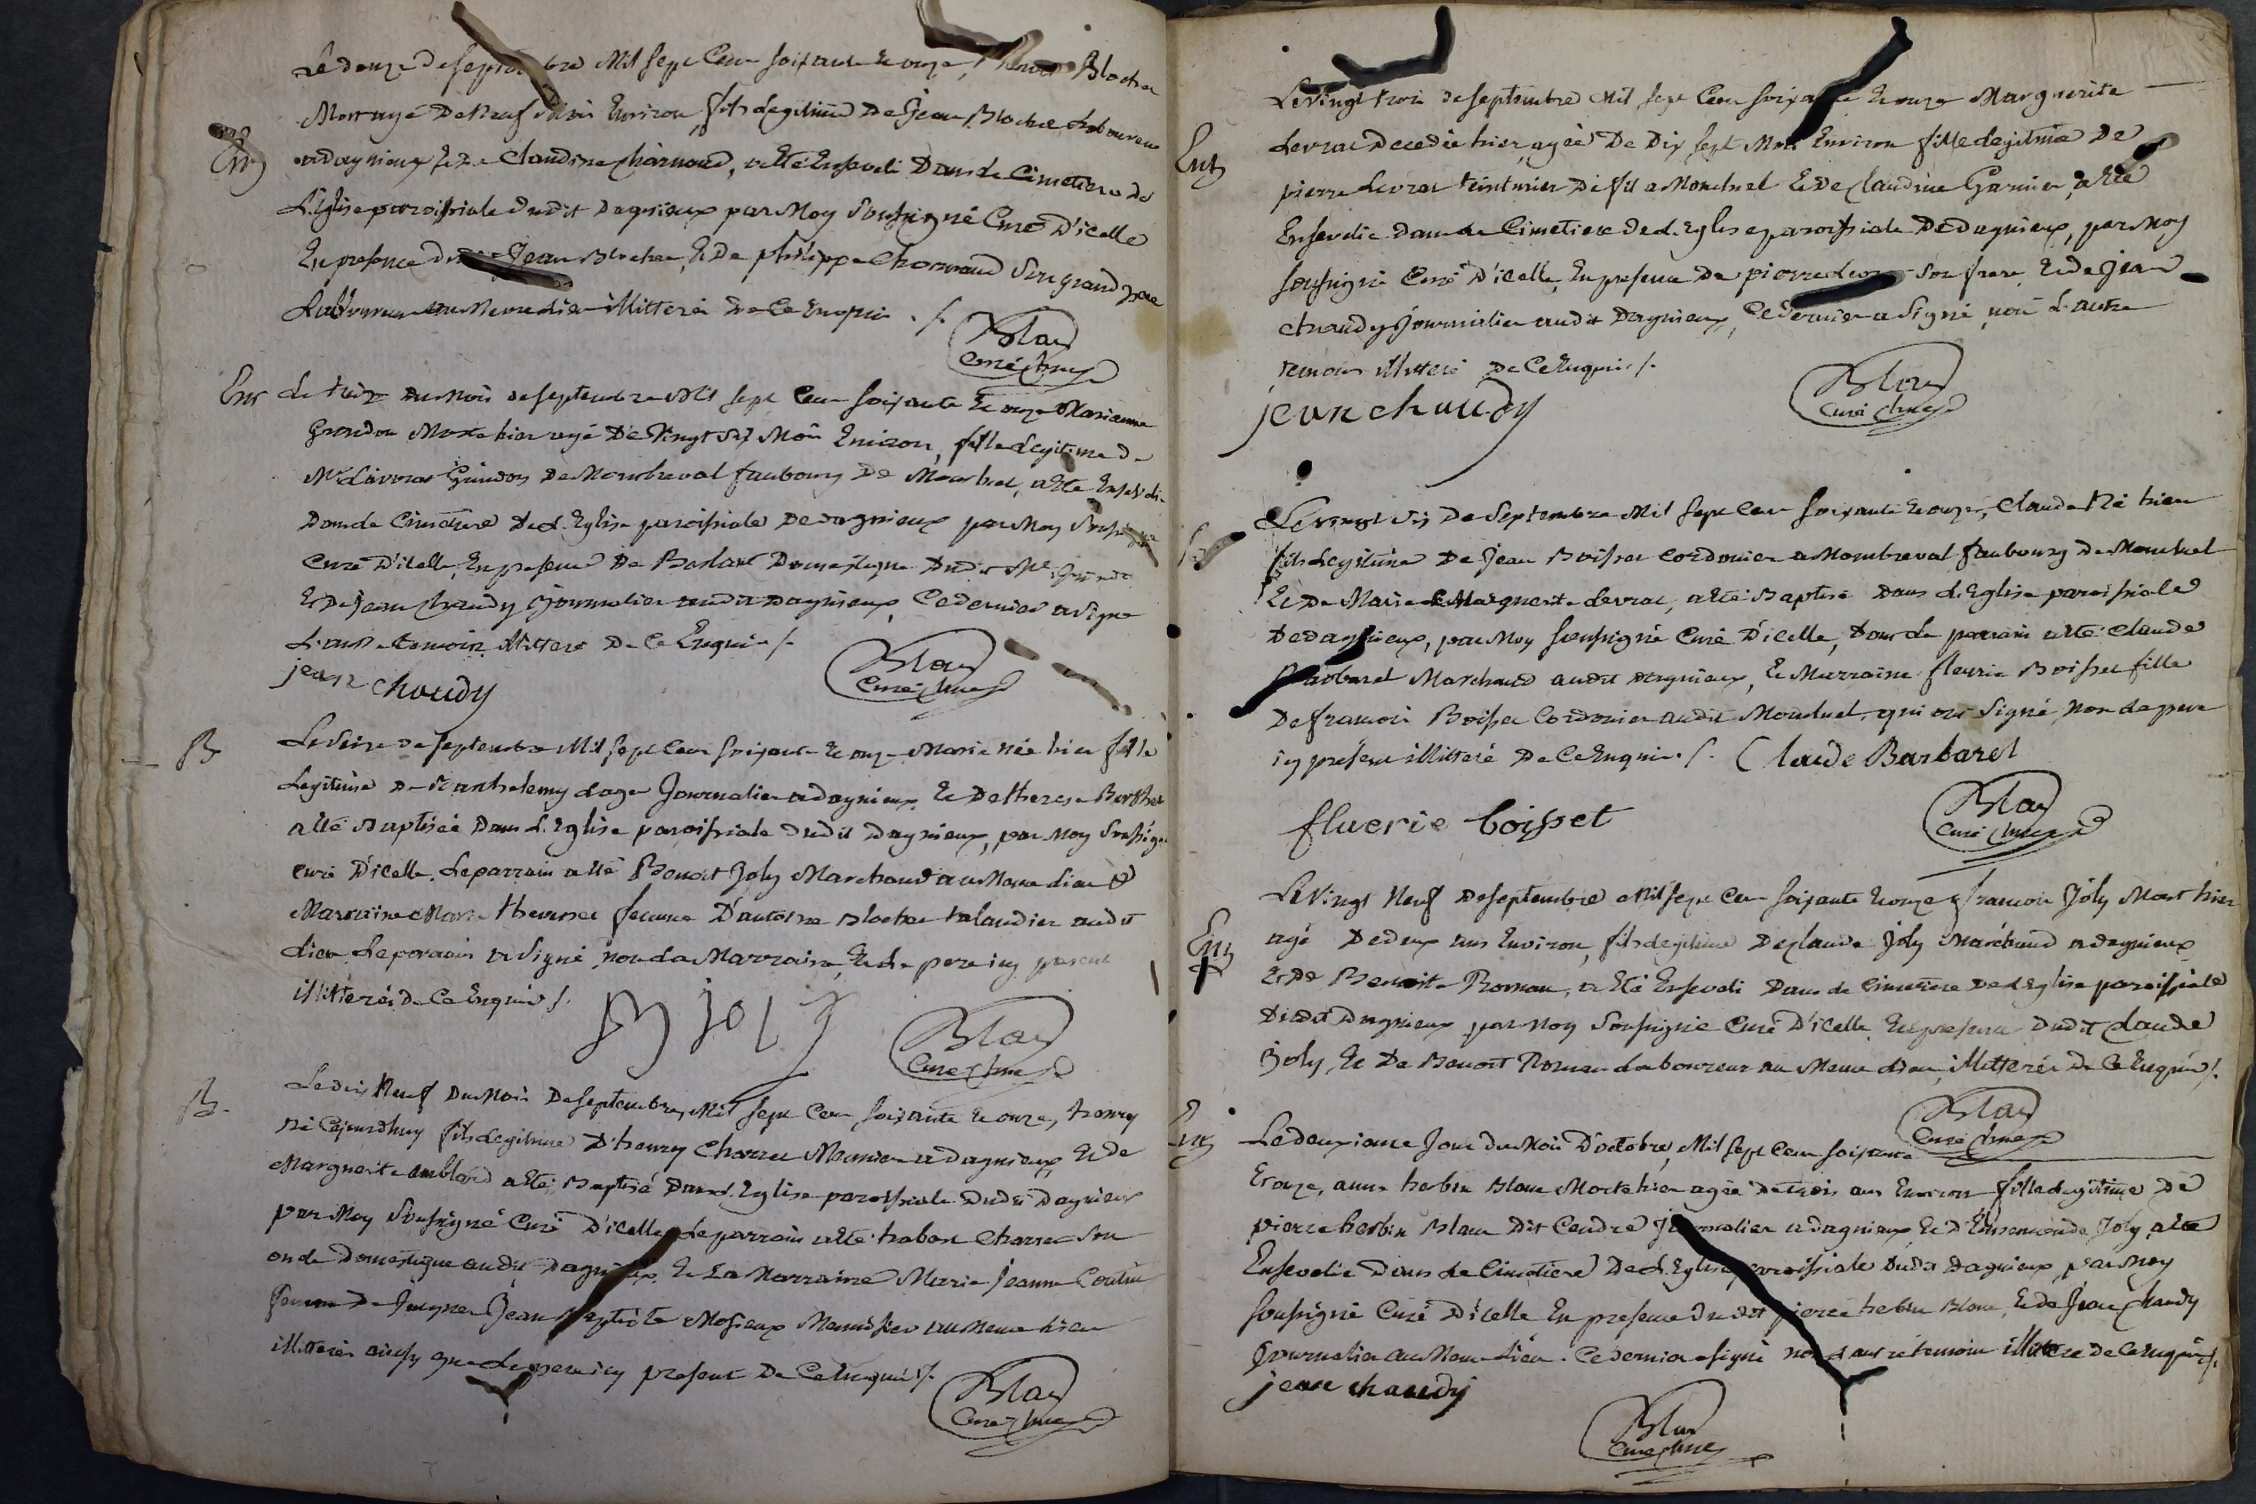 Le douze de septembre Mil sept Cent soixante et onze, Blochet
Mort agé De Neuf Environ fils Legitime De Jean Blochet Laboureur
Ent
a dagnieux et de Claudine Charnond, a Eté Enseveli Dans Le Cimetiere de
L'Eglise paroissiale dudit dagnieux par Moy soussigné Curé D'icelle
En presence de Jean Blochet, et De philippe Son grand pere
Laboureur au Meme lieu illitteré De Ce Enquis ./.
Blay
Curé
Ent Le treize du Mois de septembre Mil sept Cent soixante et onze Marianne
Grindon Morte hier agé De Vingt Six Mois Environ, fille Legitime de
Mr Grindon De Montbreval faubourg De Monluel, a Eté Ensevelie
Dans Le Cimetiere De L'Eglise paroissiale De dagnieux par Moy soussigné
Curé D'icelle, En presence De Domestique Dudit Mr Grindon
Et De jean chaudy journalier audit dagnieux, Ce dernier a signé
L'autre temoin illitteré De Ce Enquis /.
jean chaudy
Blay
Curé
B Le seize de septembre Mil sept Cent soixante et onze Marie née hier fille
Legitime De Barthelemy Loge Journalier a dagnieux Et De therese Berthet
a Eté Baptisée Dans L'Eglise paroissiale dudit dagnieux, par Moy soussigné
curé D'icelle. Le parrain a Eté Benoit Joly Marchand au Meme lieu et
Marraine Marie femme D'antoine Blochet taillandier audit
Lieu. Le parrain a signé, non La Marraine, Et Le pere icy present
illitterés De Ce Enquis /.
B joly
Blay
Curé
B. Le dix Neuf du Mois De septembre Mil sept Cent soixante et onze, henry
né Cejourdhuy fils Legitime D'henry Charret Meunier a dagnieux, Et De
Marguerite amblard a Eté Baptisé Dans L'Eglise paroissiale Dudit Dagnieux
par Moy soussigné Curé D'icelle, Le parrain a Eté Charret Son
oncle Domestique audit Dagnieux, Et La Marraine Marie Jeanne
femme De Jean Baptiste Menuisier au Meme Lieu
illitterés ainsy que Le pere icy present De Ce Enquis /.
Blay
Curé
Le Vingt trois de septembre Mil sept Cent soixante et onze Marguerite
Ent
Levrat decedée hier, agée De Dix sept Mois Environ fille Legitime De
pierre Levrat teinturier De fil a Monluel Et De Claudine Garnier, a Eté
Ensevelie dans Le Cimetiere De L'Eglise paroissiale De dagnieux, par Moy
soussigné Curé D'icelle, En presence De pierre Levrat Son frere, Et de jean
chaudy journalier audit Dagnieux, Ce dernier a Signé, non L'autre
temoin illitteré De Ce Enquis /.
jean chaudy
Blay
Curé
Le vingt Six De Septembre Mil sept Cent soixante et onze, Claude Né hier
fils Legitime De Jean Boisset Cordonier a Montbreval faubourg De Monluel
Et De Marie Marguerite Levrat, a Eté Baptisé Dans L'Eglise paroissiale
De dagnieux, par Moy soussigné Curé D'icelle, Dont Le parrain a Eté Claude
Barbaret Marchand audit dagnieux, Et Marraine fleurie Boisset fille
De francois Boisset Cordonier audit Monluel, qui ont Signé, Non Le pere
icy present illitteré De Ce Enquis ./. Claude Barbaret
fluerie boisset
Blay
Curé
Le Vingt Neuf De septembre Mil sept Cent soixante et onze francois Joly Mort hier
Ent
agé De deux ans Environ, fils Legitime De Claude Joly Marechand a dagnieux
Et De Benoite Roman, a Eté Enseveli Dans Le Cimetiere De L'Eglise paroissiale
Dudit Dagnieux par Moy soussigné Curé D'icelle En presence Dudit Claude
Joly, Et De Benoit Roman Laboureur au Meme Lieu, illitterés De Ce Enquis /.
Blay
Curé
Ent Le deuxieme Jour du Mois D'octobre, Mil sept Cent soixante
Et onze, anne herbin Blanc Morte hier agée De trois ans Environ fille Legitime De
pierre herbin Blanc Dit Cendre journalier a dagnieux Et D' Joly, a Eté
Ensevelie Dans Le Cimetiere De L'Eglise paroissiale dudit dagnieux, par Moy
soussigné Curé D'icelle En presence du dit pierre herbin Blanc, Et De Jean chaudy
journalier au Meme Lieu. Ce dernier a signé non L'autre temoin illitteré de Ce Enquis /.
jean chaudy
Blay
Curé